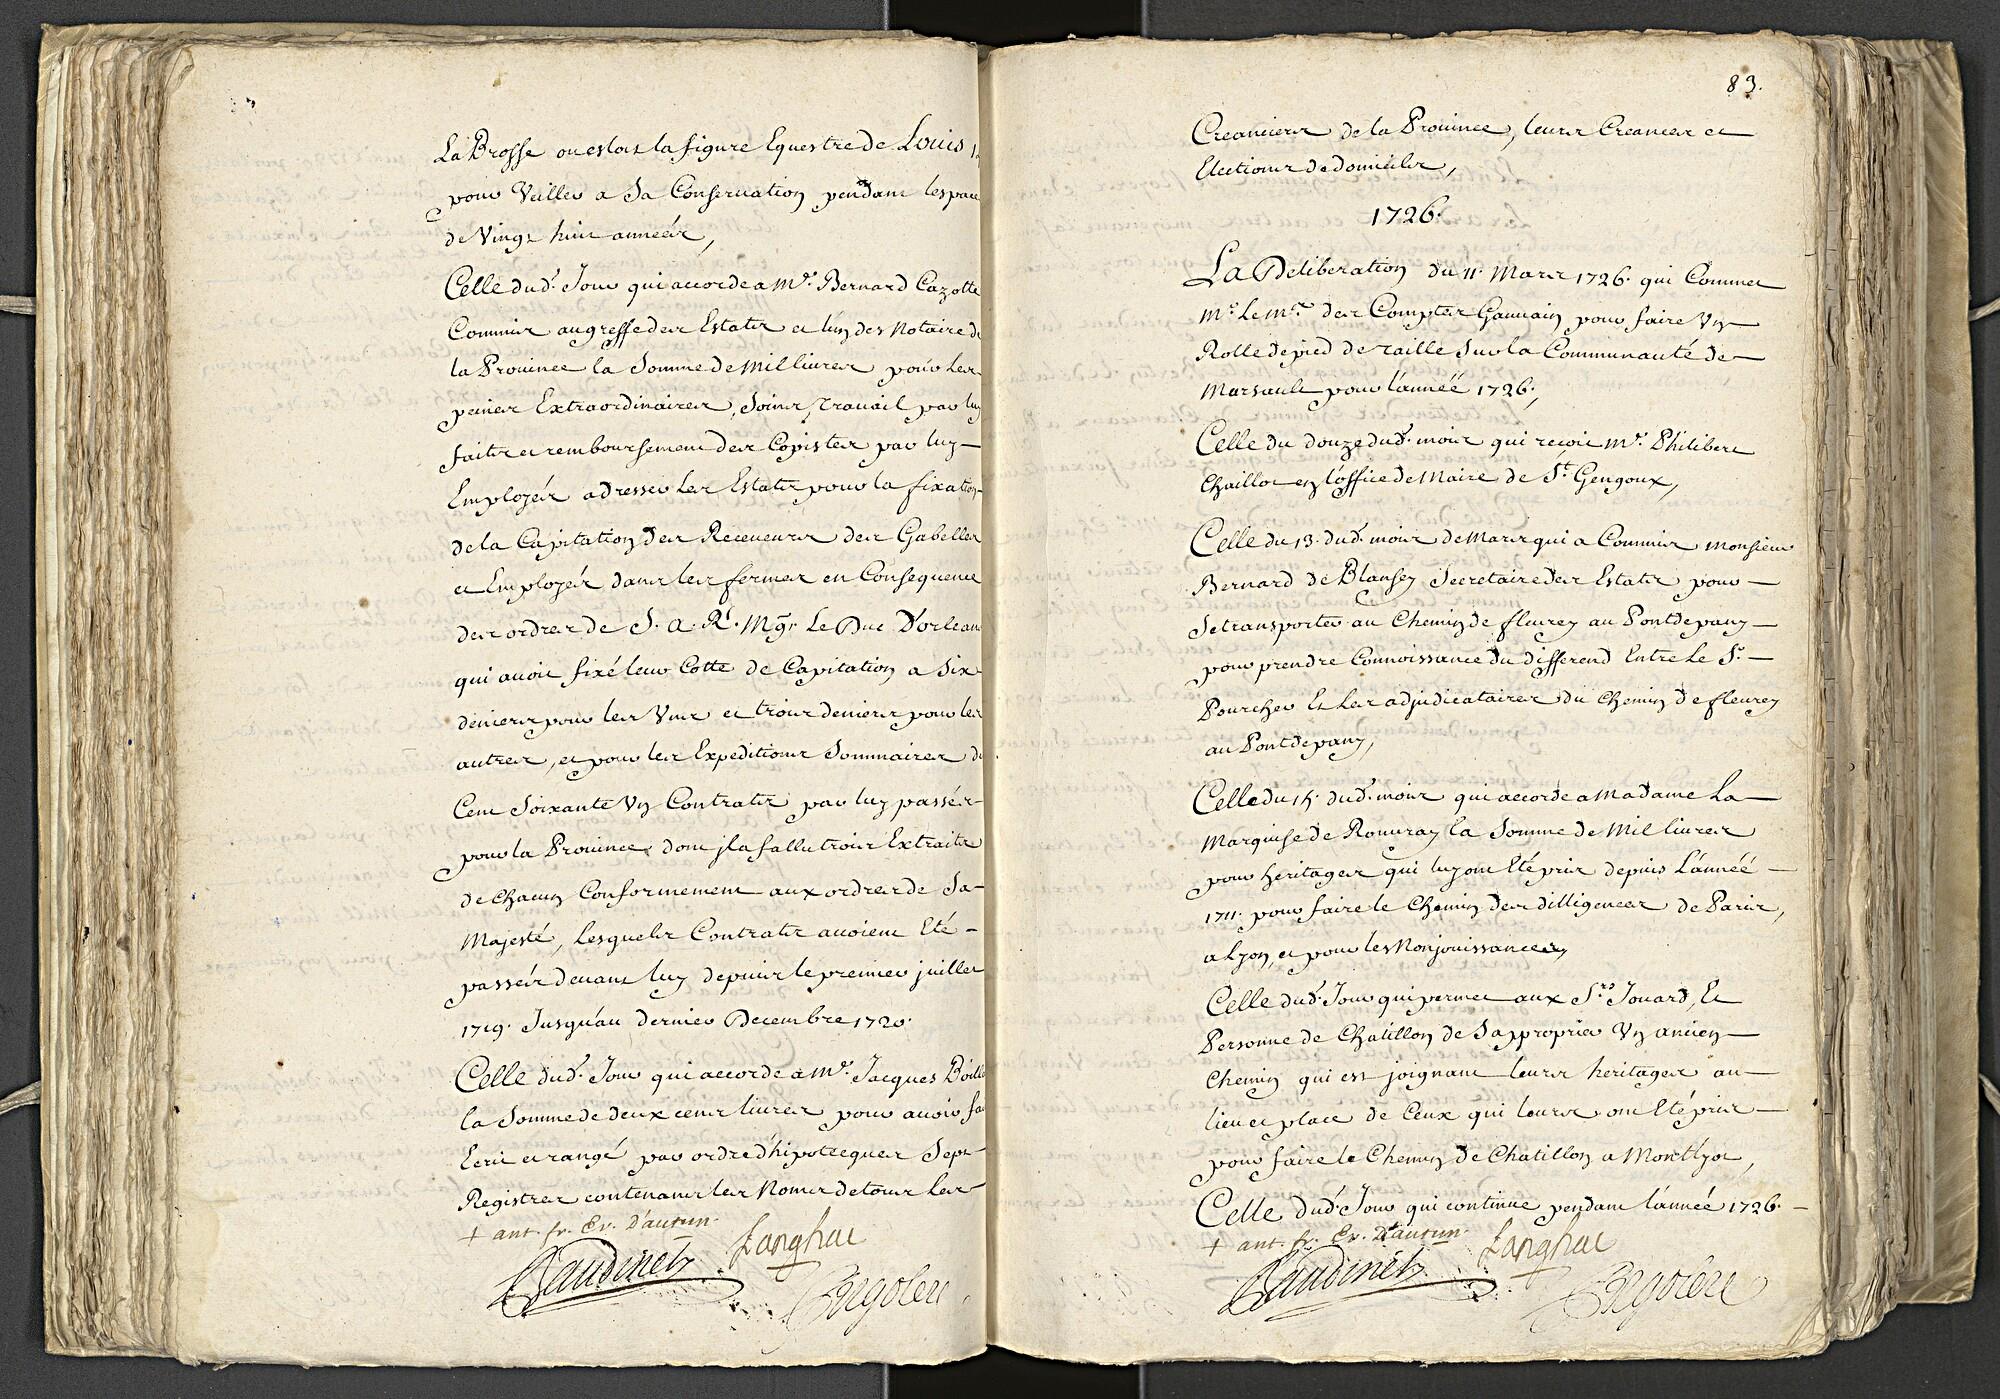 La Brosse ou estoit la figure Equestre de Louis 1
pour Veiller a Sa Conseruation pendant lespace
de Vingt huit années,
Celle dud. Jour qui accorde a Mr. Bernard Cazotte
Commis au greffe des Estats et lun des Notaire de
la Prouince la Somme de Mil liures pour les
peines Extraordinaires, Soins, trauail par luy
faits et remboursement des Copistes par luy
Employés a dresser les Estats pour la fixation
de la Capitation des Receueurs des Gabelles
et Employés dans les fermes en Consequence
des ordres de S. A. Rl. Mgr Le Duc D'orleans
qui auoit fixé leur Cotte de Capitation a Six
deniers pour les Vns et trois deniers pour les
autres, et pour les Expeditions Sommaires de
Cent Soixante Vn Contrats par luy passés
pour la Prouince dont jl a fallu trois Extraits
de Chacun Conformement aux ordres de Sa
Majesté, Lesquels Contrats auoient Eté
passés deuant luy depuis le premier juillet
1719. Jusqu'au dernier Decembre 1720.
Celle dud. Jour qui accorde a Mr. Jacques Boille
la Somme de deux cens liures pour auoir fa
Ecrit et rangé par ordre d'hipotecques Sept
Registres contenans les Noms de tous les
+ ant. fr. Ev. D'autun.
Langhac
Baudinet
83.
Creanciers de la Prouince, leurs Creances et
Elections de domicile,
1726.
La Deliberation du 11. Mars 1726. qui Commet
Mr. Le Me. des Comptes Gauuain pour faire Vn
Rolle de pied de taille Sur la Communauté de
Marsault pour l'année 1726,
Celle du douze dud. mois qui reçoit Mr. Philibert
Chaillot en l'office de Maire de St. Gengoux,
Celle du 13. dud. mois de Mars qui a Commis Monsieur
Bernard de Blansey Secretaire des Estats pour
Se transporter au Chemin de fleurey au Pontdepany
pour prendre Connoissance du differend Entre Le Sr.
Pourcher Et Les adjudicataires du Chemin de fleurey
au Pontdepany,
Celle du 15. dud. mois qui accorde a Madame La
Marquise de Rouuray la Somme de Mil liures
pour heritages qui luy ont Eté pris depuis L'année
1711. pour faire le Chemin des dilligences de Paris,
a Lyon, et pour les Nonjouissances,
Celle dud. Jour qui permet aux Srs. Jouard, Et
Personne de Chatillon de Sapproprier Vn ancien
Chemin qui est joignant leurs heritages au
lieu et place de Ceux qui leurs ont Eté pris
pour faire le Chemin de Chatillon a Montlyot,
Celle dud. Jour qui continue pendant l'année 1726.
+ ant. fr. Ev. D'autun.
Langhac
Baudinet